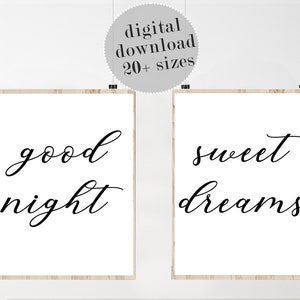 digital
download
20+ sizes
good
night
sweet
dreams